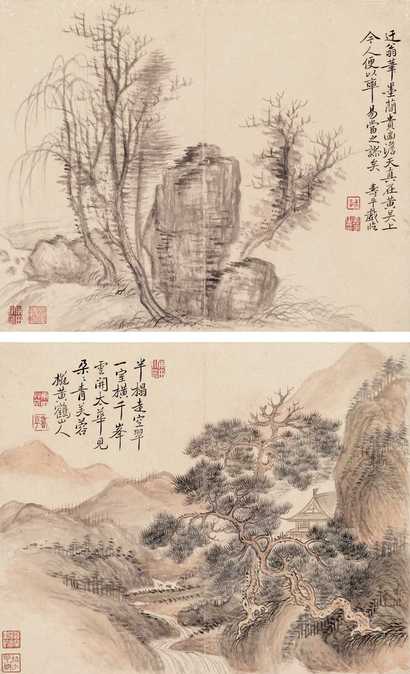 迂翁筆墨簡貴幽澹天真在黃吳上
今人便以率易當之謬矣 壽平戲臨
半榻走空翠
一室橫千峯
雲開太華見
朵々青芙蓉
擬黃鶴山人